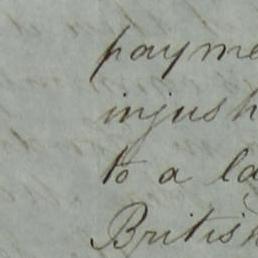 payme
injus
to a la
British